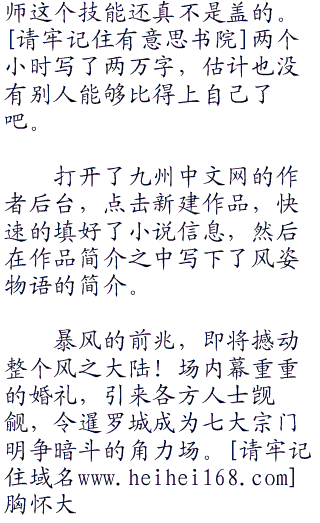 师这个技能还真不是盖的。
[请牢记住有意思书院]两个
小时写了两万字，估计也没
有别人能够比得上自己了
吧。
打开了九州中文网的作
者后台，点击新建作品，快
速的填好了小说信息，然后
在作品简介之中写下了风姿
物语的简介。
暴风的前兆，即将撼动
整个风之大陆！场内幕重重
的婚礼，引来各方人士觊
觎，令暹罗城成为七大宗门
明争暗斗的角力场。[请牢记
住域名www.heihei168.com]
胸怀大